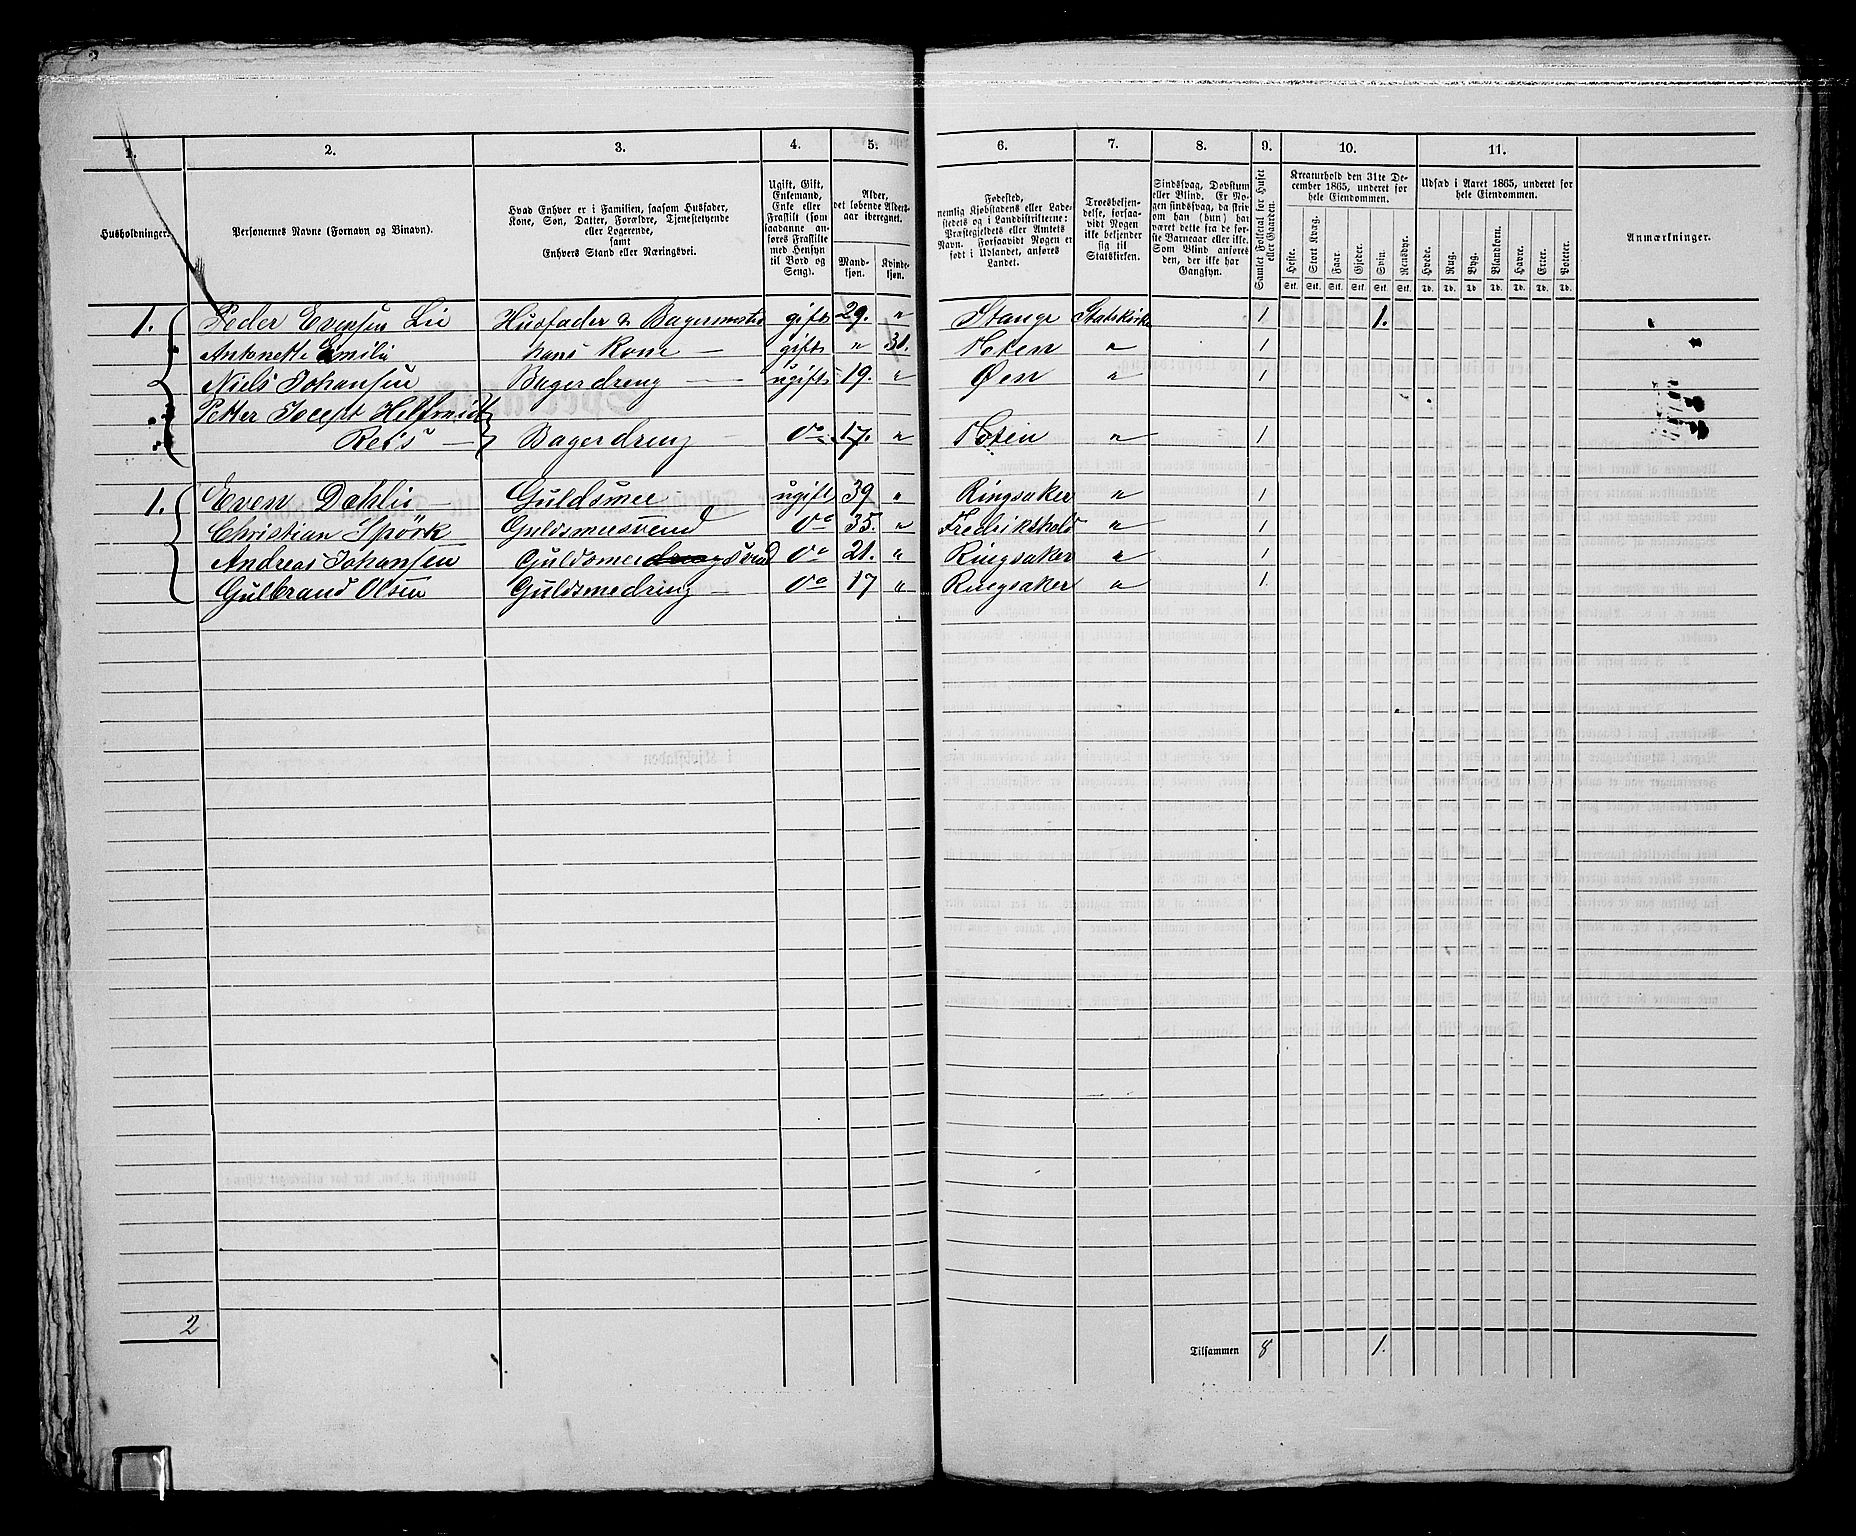 1. 2. 3. 4. 5. 6. 7. 8. 9. 10. 11.
Husholdninger.
Personernes Navne (Fornavn og Binavn).
Hvad Enhver er i Familien, saasom Husfader,
Kone, Søn, Datter, Forældre, Tjenestetyende
eller Logerende,
samt
Enhvers Stand eller Næringsvei.
Ugift, Gift,
Enkemand,
Enke eller
Fraskilt (som
saadanne an-
føres Fraskilte
med Hensyn
til Bord og
Seng).
Alder,
det løbende Alders-
aar iberegnet.
Mand-
kjøn.
Kvinde-
kjøn.
Fødested,
nemlig Kjøbstadens eller Lade-
stedets og i Landdistrikterne:
Præstegjeldets eller Amtets
Navn. Forsaavidt Nogen er
født i Udlandet, anføres
Landet.
Troesbekjen-
delse, forsaa-
vidt Nogen
ikke bekjender
sig til
Statskirken.
Sindssvag, Døvstum
eller Blind. Er No-
gen sindssvag, da skriv
om han (hun) har
været dette fra de før-
ste Barneaar eller ikke.
Som Blind anføres
den, der ikke har
Gangsyn.
Samlet Folketal for Huset
eller Gaarden.
Kreaturhold den 31te De-
cember 1865, underet for
hele Eiendommen.
Heste. Stort Kvæg. Faar. Gjeder. Svin. Rensdyr.
Stk. Stk. Stk. Stk. Stk. Stk.
Udsæd i Aaret 1865, underet for
hele Eiendommen.
Hvede. Rug. Byg. Blandkorn. Havre. Erter. Poteter.
Td. Td. Td. Td. Td. Td. Td.
Anmærkninger.
1. Peder Evensen Lie Husfader & Bagermester gift 29. " Stange Statskirke 1 1.
Antonette Emilie hans Kone — gift " 31. Hoten " 1
Niels Johansen Bagerdreng — ugift 19. " Øen " 1
Petter Jocept
Bagerdreng do 17. " " 1
1. Even Dahlie — Guldsmee ugift 39 " Ringsaker " 1
Christian Spörk Guldsmeesvend do 35. " Fredrikshald " 1
Andreas Johansen Guldsmeedreng Svend do 21. " Ringsaker " 1
Gulbrand Olsen Guldsmedreng — do 17 " Ringsaker " 1
2
Tilsammen 8 1.